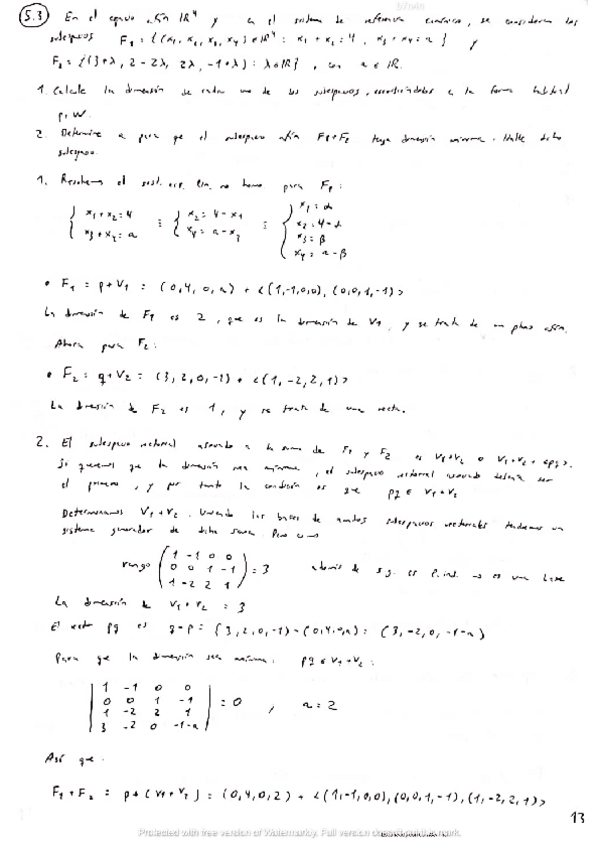 5.3) En el espacio afín IR⁴ y en el sistema de referencia canónico, se consideran los
subespacios F₁ = {(x₁, x₂, x₃, x₄) ∈ IR⁴ : x₁ + x₂ = 4, x₃ + x₄ = a} y
F₂ = {(3+λ, 2-2λ, 2λ, -1+λ) : λ ∈ IR}, con a ∈ IR.
1. Calcule la dimensión de cada uno de los subespacios, escribiéndolos en la forma habitual
p+W.
2. Determine a para que el subespacio afín F₁+F₂ tenga dimensión mínima. Halle dicho
subespacio.
1. Resolvemos el sist. ec. lin. no homo para F₁:
{ x₁+x₂=4 ; x₃+x₄=a : { x₂=4-x₁ ; x₄=a-x₃ : { x₁=α ; x₂=4-α ; x₃=β ; x₄=a-β
• F₁ = p+V₁ = (0,4,0,a) + <(1,-1,0,0), (0,0,1,-1)>
La dimensión de F₁ es 2, que es la dimensión de V₁, y se trata de un plano afín.
Ahora para F₂:
• F₂ = q+V₂ = (3,2,0,-1) + <(1,-2,2,1)>
La dimensión de F₂ es 1, y se trata de una recta.
2. El subespacio vectorial asociado a la suma de F₁ y F₂ es V₁+V₂ o V₁+V₂+<pq>.
Si queremos que la dimensión sea mínima, el subespacio vectorial asociado debería ser
el primero, y por tanto la condición es que pq ∈ V₁+V₂
Determinamos V₁+V₂. Uniendo las bases de ambos subespacios vectoriales tendremos un
sistema generador de dicha suma. Pero como
rango
(1 -1 0 0
0 0 1 -1
1 -2 2 1) = 3 además de s.g. es l.ind. → es una base
La dimensión de V₁+V₂ = 3
El vect pq es q-p = (3,2,0,-1)-(0,4,0,a) = (3,-2,0,-1-a)
Para que la dimensión sea mínima: pq ∈ V₁+V₂:
|1 -1 0 0
0 0 1 -1
1 -2 2 1
3 -2 0 -1-a| = 0 , a=2
Así que:
F₁+F₂ = p+(V₁+V₂) = (0,4,0,2) + <(1,-1,0,0), (0,0,1,-1), (1,-2,2,1)>
13
Protected with free version of Watermarkly. Full version doesn't put this mark.